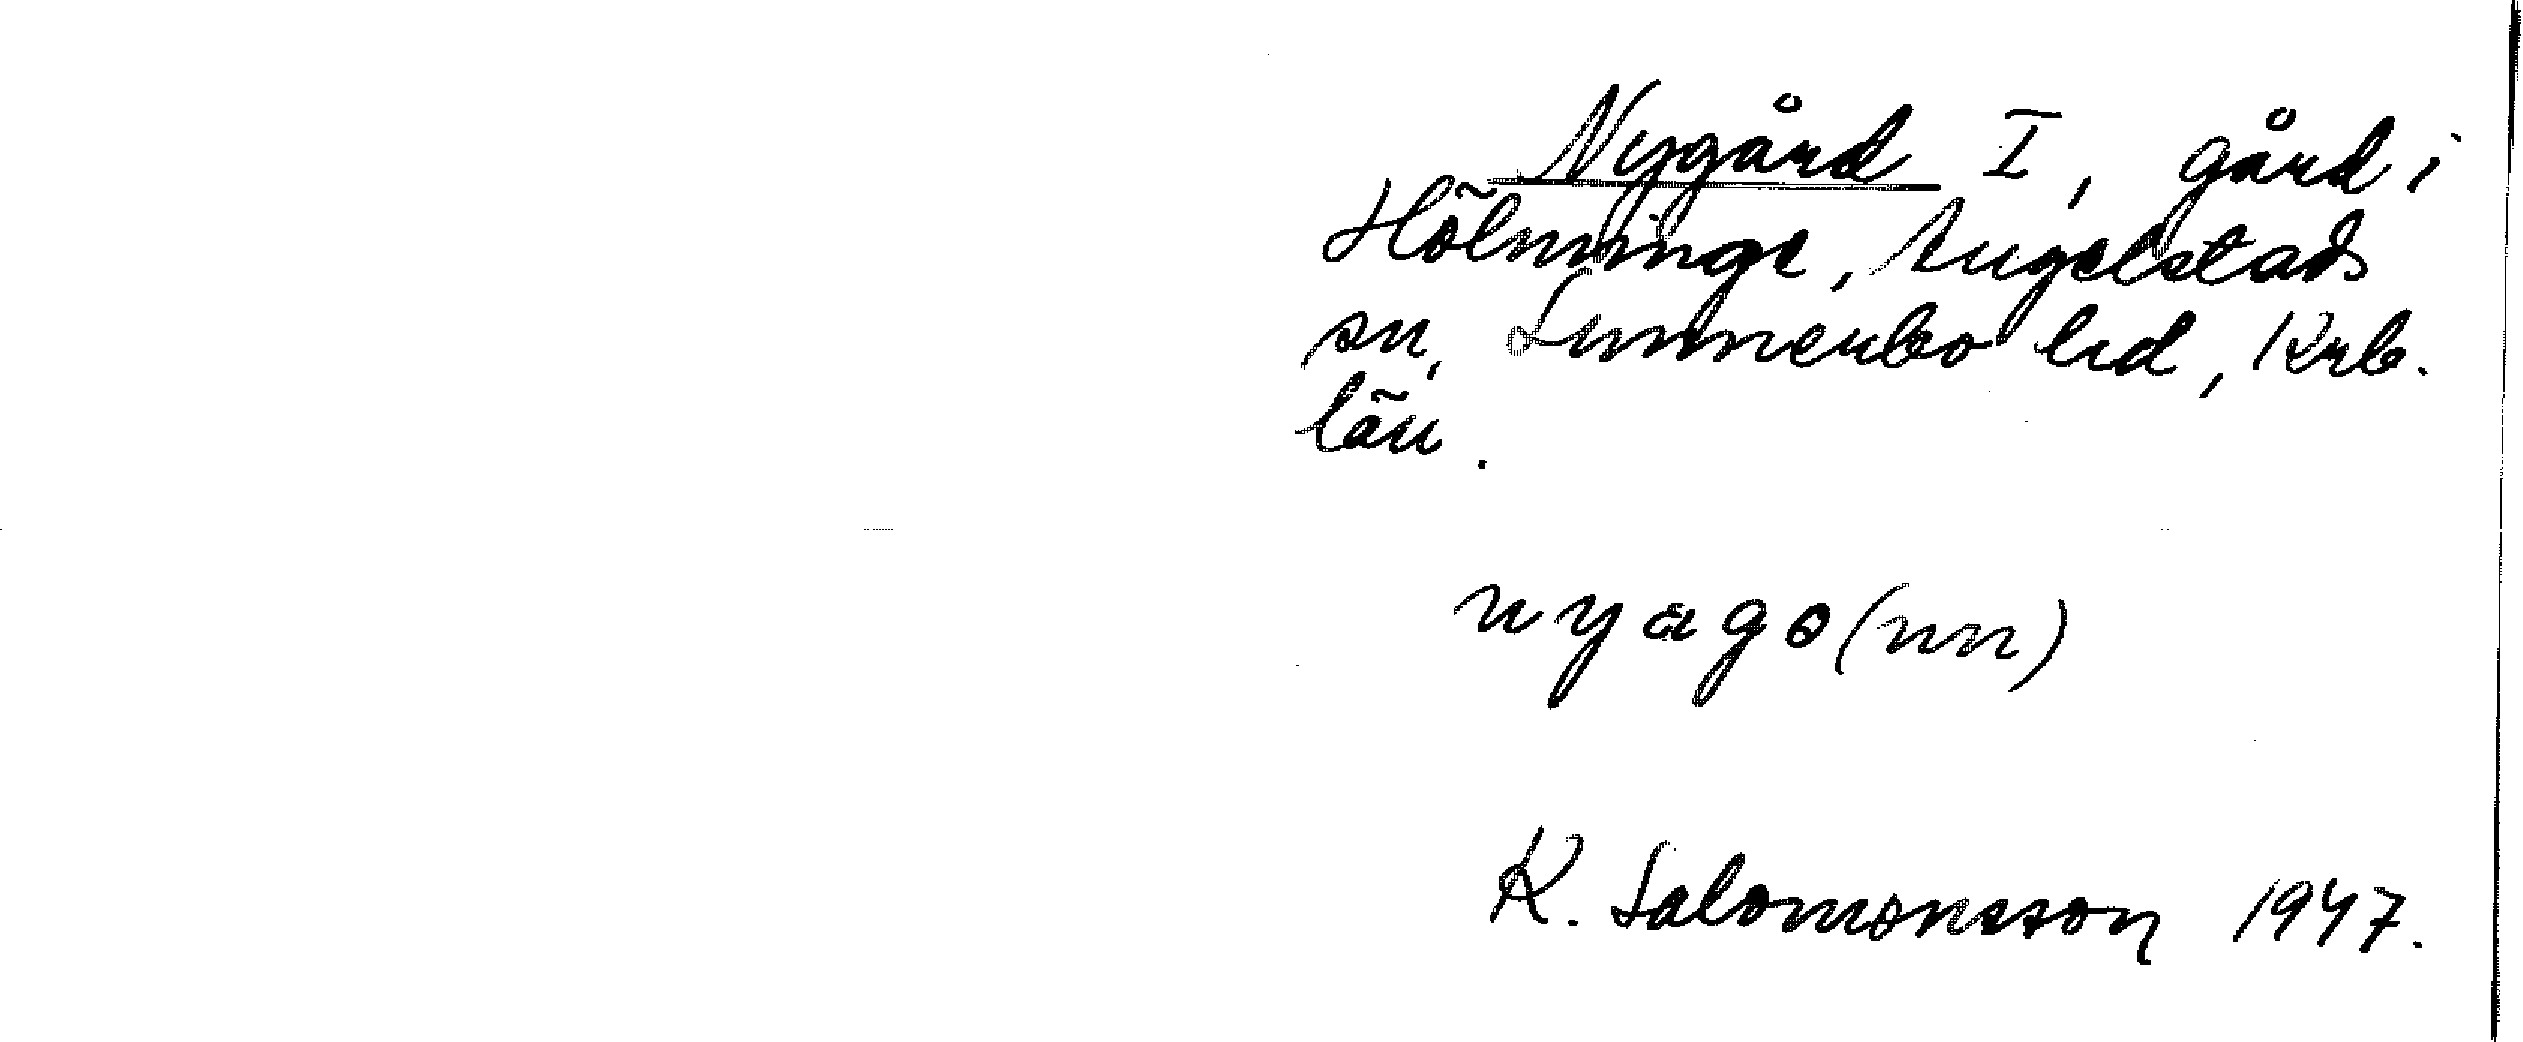 Nygård I, gård i
Hölminge, Angelstads
sn, Sunnerbo hd, Krb.
län.
nyago(nn)
K. Salomonsson 1947.